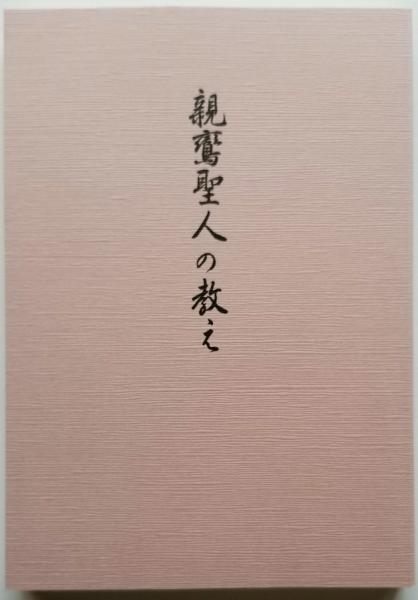 親鸞聖人の教え